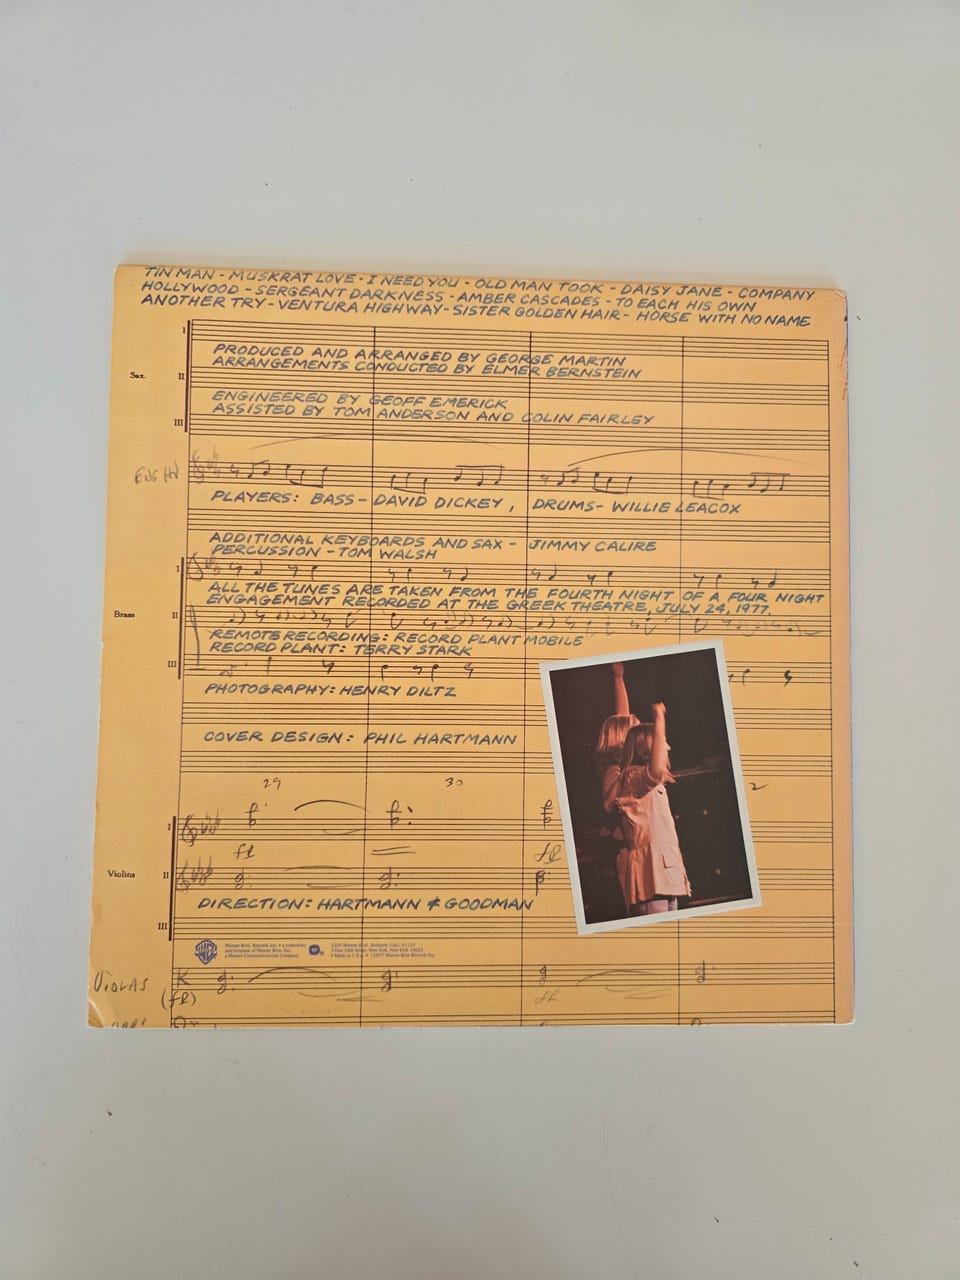 TIN MAN - MUSKRAT LOVE - I NEED YOU - OLD MAN TOOK - DAISY JANE - COMPANY
HOLLYWOOD - SERGEANT DARKNESS - AMBER CASCADES - TO EACH HIS OWN
ANOTHER TRY - VENTURA HIGHWAY - SISTER GOLDEN HAIR - HORSE WITH NO NAME
I
PRODUCED AND ARRANGED BY GEORGE MARTIN
ARRANGEMENTS CONDUCTED BY ELMER BERNSTEIN
Sax.
II
ENGINEERED BY GEOFF EMERICK
ASSISTED BY TOM ANDERSON AND COLIN FAIRLEY
III
ENG H
PLAYERS: BASS - DAVID DICKEY, DRUMS - WILLIE LEACOX
ADDITIONAL KEYBOARDS AND SAX - JIMMY CALIRE
PERCUSSION - TOM WALSH
I
ALL THE TUNES ARE TAKEN FROM THE FOURTH NIGHT OF A FOUR NIGHT
ENGAGEMENT RECORDED AT THE GREEK THEATRE, JULY 24, 1977.
Brass
II
REMOTE RECORDING: RECORD PLANT MOBILE
RECORD PLANT: TERRY STARK
III
PHOTOGRAPHY: HENRY DILTZ
COVER DESIGN: PHIL HARTMANN
29 30 2
I
ff ff
Violins
II
DIRECTION: HARTMANN & GOODMAN
III
Warner Bros. Records Inc. • a subsidiary
and licensee of Warner Bros. Inc.
a Warner Communications Company
3300 Warner Blvd., Burbank, Calif. 91510
3 East 54th Street, New York, New York 10022
• Made in U.S.A. • ©1977 Warner Bros. Records Inc.
VIOLAS
(ff) ff